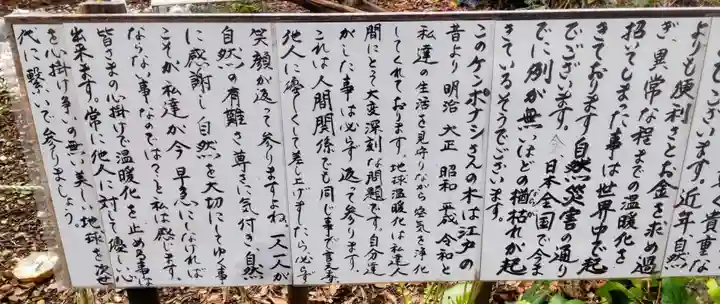 います。
の貴重な
よりも便利さとお金を求め過
ぎ、異常な程までの温暖化を
招いてしまった事は世界中で起
きております自然災害の通り
でございます。今、日本全国で今ま
でに例が無いほどの楢枯れが起
きているそうでございます。
このケンポナシさんの木は江戸の
昔より明治 大正 昭和 平成 令和と
私達の生活を見守りながら空気を浄化
してくれております。地球温暖化は私達人
間にとって大変深刻な問題です。自分達
がした事は必らず返って参ります。
これは人間関係でも同じ事で言葉
他人に優しくして差し上げましたら必らず
笑顔が返って参りますよね。一人一人が
自然の有難さ尊さに気付き自然
に感謝し自然を大切にしてゆく事
こそが私達が今早急にしなければ
ならない事なのでは?と私は感じます。
皆さまの心掛けで温暖化を止める事は
出来ます。常に他人に対して優しい心
を心掛け争いの無い美しい地球を次世
代に繋いで参りましょう。